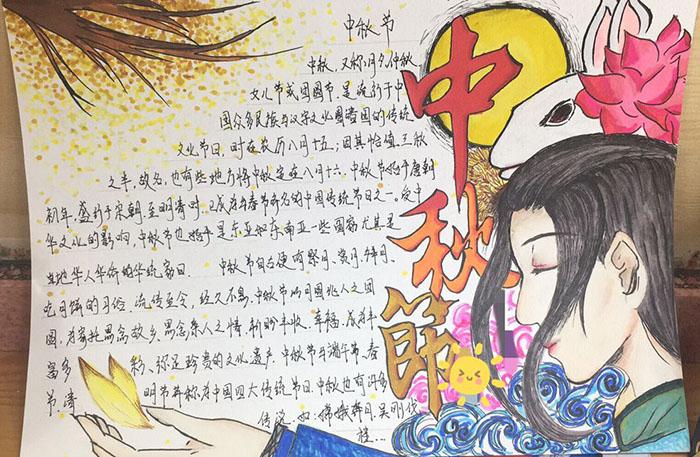 中秋节
中秋,又称月夕,仲秋,
女儿节或团圆节,是流行于中
国众多民族与汉字文化圈诸国的传统
文化节日,时在农历八月十五;因其恰值三秋
之半,故名,也有些地方将中秋定在八月十六,中秋节始于唐朝
初年,盛行于宋朝,至明清时,已成为与春节齐名的中国传统节日之一。受中
华文化的影响,中秋节也是东亚和东南亚一些国家尤其是
当地华人华侨的传统节日、中秋节自古便有祭月、赏月、拜月、
吃月饼的习俗,流传至今,经久不息。中秋节以月圆兆人之团
圆,为寄托思念故乡,思念亲人之情,祈盼丰收、幸福,成为丰
富多彩、弥足珍贵的文化遗产,中秋节与端午节、春
节、清明节并称为中国四大传统节日,中秋也有许多
传说,如:嫦娥奔月,吴刚伐
桂...
中秋節